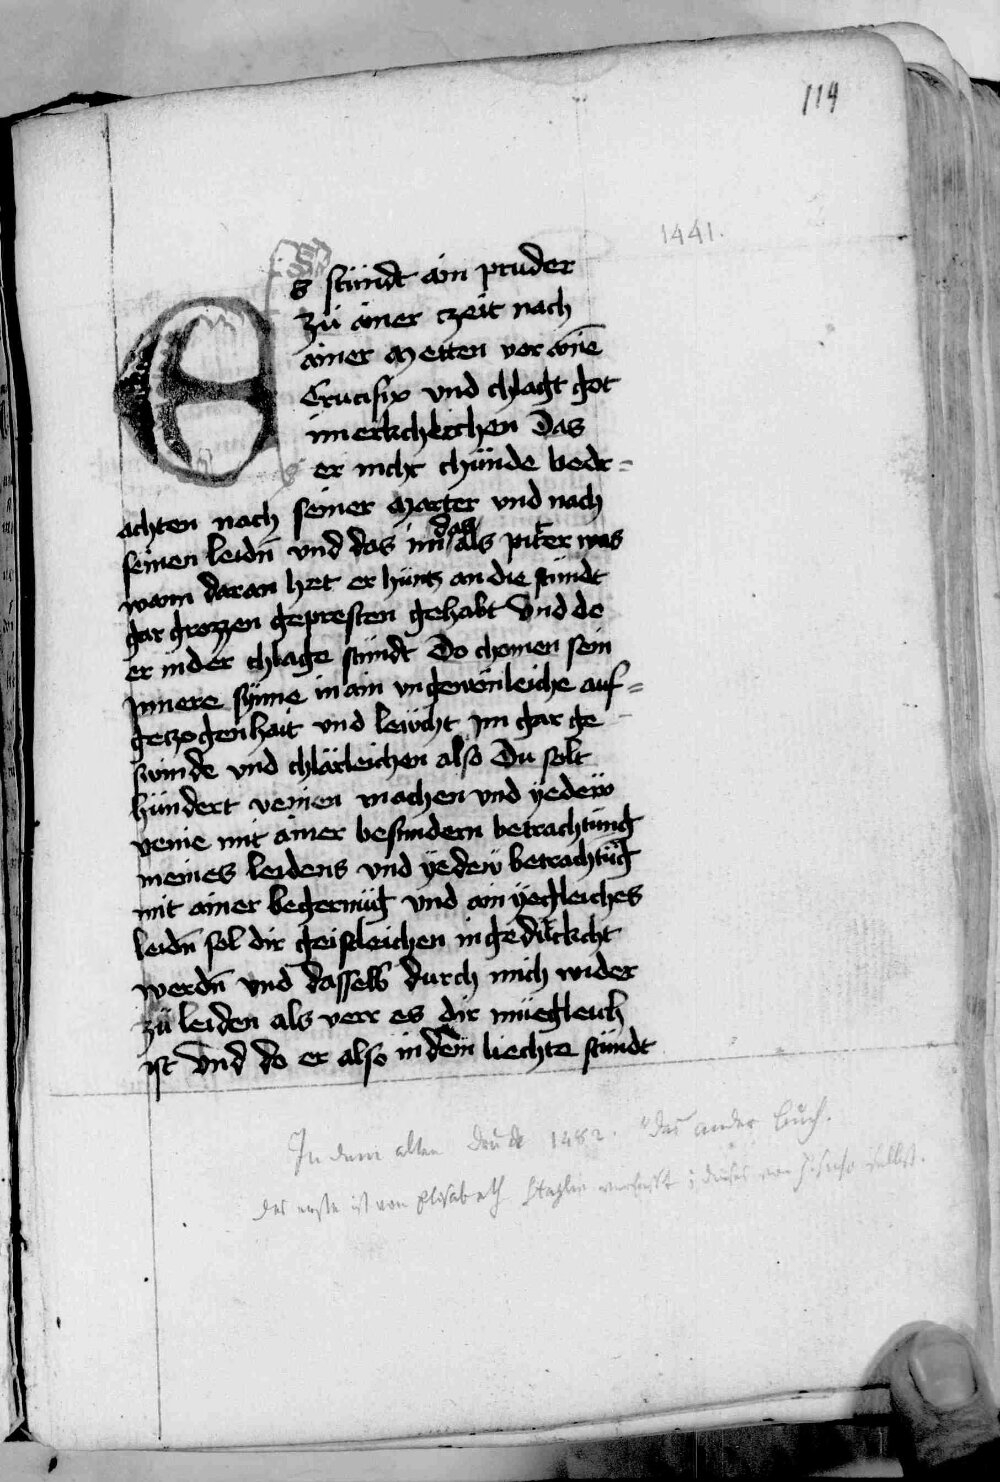 114
1441.
Es stündt ain pruder
zü ainer czeit nach
ainer Metten vor aine̅
Crucifix vnd chlagt got
innerkchleichen Das
er nicht chünde bedr=
achten nach seiner Marter vnd nach
seinen leidn̅ vnd das im das als piter was
wann daran het er hüntz an die stündt
gar grozzen gepresten gehabt Vnd do
er in der chlage stündt Do chomen sein
Innere synne in ain vngewönleiche auf=
geczogenhait vnd lewcht Im gar ge
swinde vnd chlärleichen also Du solt
hündert venien machen vnd yedew
venie mit ainer besundern betrachtüng
meines leidens vnd yedew betrachtu̅g
mit ainer begernu̅g vnd ain yegleiches
leidn̅ sol dir geistleichen in gedrückcht
werdn̅ vnd dasselb durch mich wider
zü leiden als verr es dir müegleich
ist Vnd do er also in dem liechte stündt
In dem alten Druck 1482. "das ander buch.
Das erste ist von Elisabeth Stäglin verfasst; dieses von selbst.